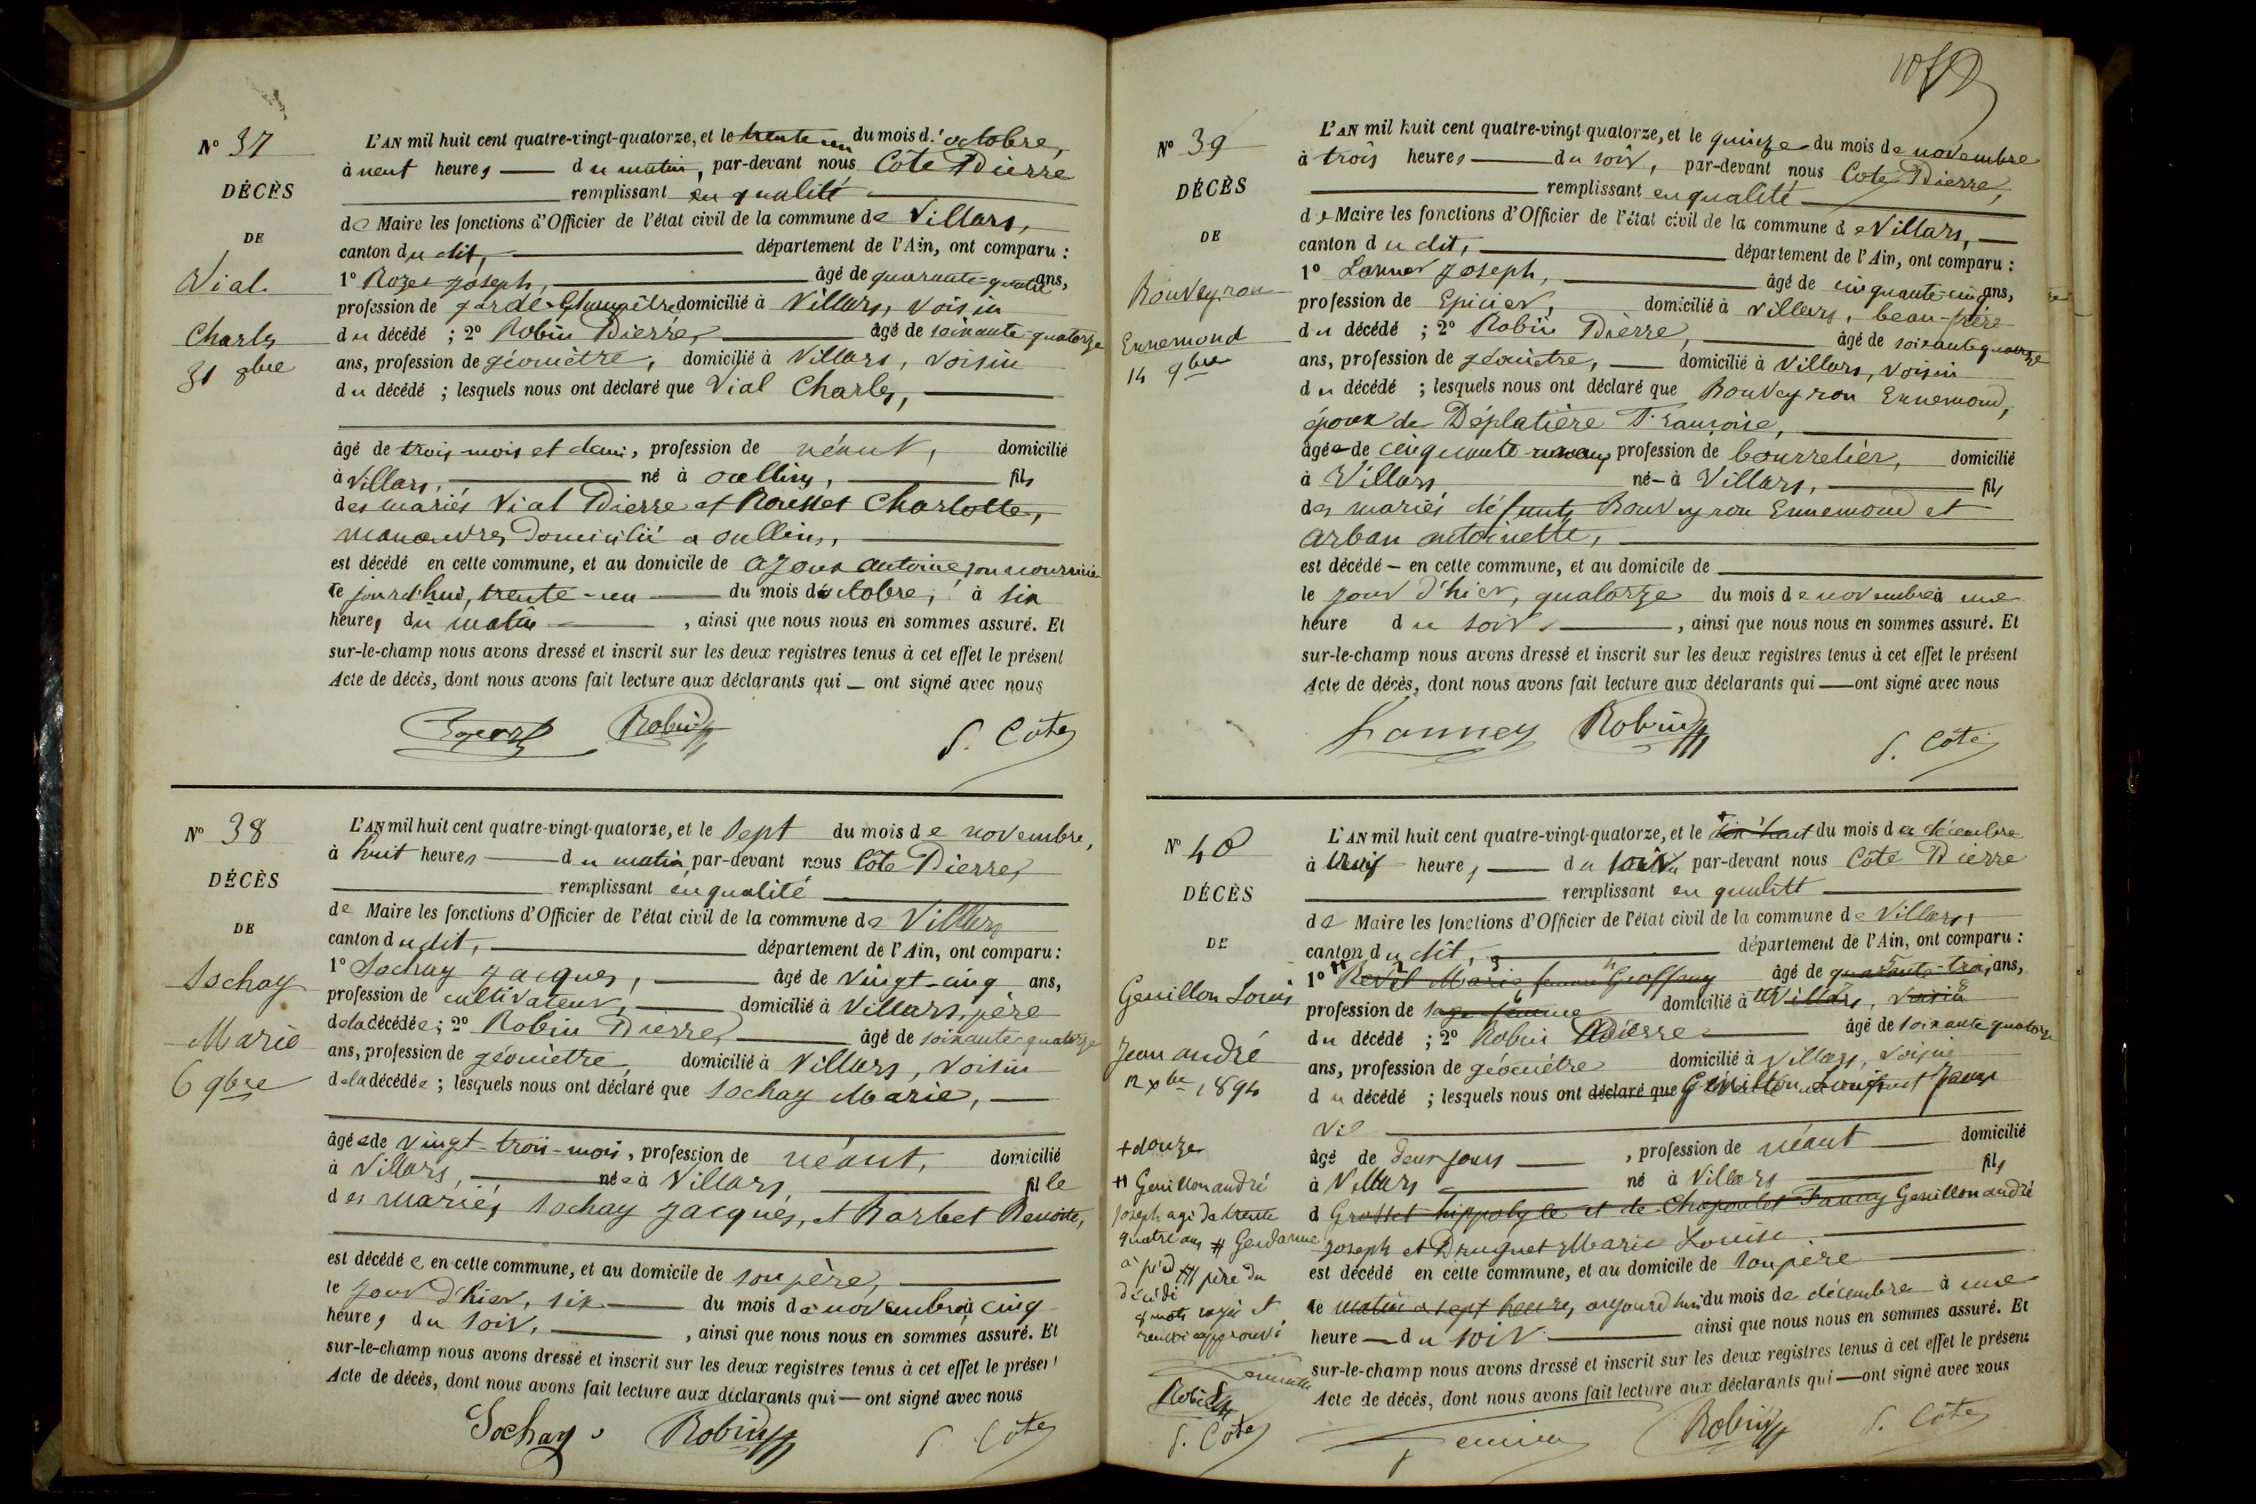 Nº 37
DÉCÈS
DE
Vial
Charles
31 8bre
L'AN mil huit cent quatre-vingt-quatorze, et le trente un du mois d'octobre,
à neuf heures du matin, par-devant nous Côte Pierre
remplissant en qualité
de Maire les fonctions d'Officier de l'état civil de la commune de Villars,
canton dudit, département de l'Ain, ont comparu :
1º Rozet Joseph, âgé de quarante-quatre ans,
profession de garde-Champêtre domicilié à Villars, voisin
du décédé ; 2º Robin Pierre, âgé de soixante-quatorze
ans, profession de géomètre, domicilié à Villars, voisin
du décédé ; lesquels nous ont déclaré que Vial Charles,
âgé de trois mois et demi, profession de néant, domicilié
à Villars, né à oullins, fils
des mariés Vial Pierre et Rousset Charlotte,
manœuvres domicilié a oullins,
est décédé en cette commune, et au domicile de ajoux antoine, son nourricier
le jourd'hui, trente-un du mois d'octobre, à six
heures du matin, ainsi que nous nous en sommes assuré. Et
sur-le-champ nous avons dressé et inscrit sur les deux registres tenus à cet effet le présent
Acte de décès, dont nous avons fait lecture aux déclarants qui ont signé avec nous
Robin P. Côte
Nº 38
DÉCÈS
DE
Sochay
Marie
6 9bre
L'AN mil huit cent quatre-vingt-quatorze, et le sept du mois de novembre,
à huit heures du matin, par-devant nous Côte Pierre,
remplissant en qualité
de Maire les fonctions d'Officier de l'état civil de la commune de Villars
canton dudit, département de l'Ain, ont comparu :
1º Sochay Jacques, âgé de vingt-cinq ans,
profession de cultivateur, domicilié à Villars, père
de la décédée ; 2º Robin Pierre, âgé de soixante-quatorze
ans, profession de géomètre, domicilié à Villars, voisin
de la décédée ; lesquels nous ont déclaré que Sochay Marie,
âgée de vingt-trois-mois, profession de néant, domicilié
à Villars, née à Villars, fille
des mariés Sochay Jacques, et Barbet Benoite,
est décédée en cette commune, et au domicile de son père,
le jour d'hier, six du mois de novembre, à cinq
heures du soir, ainsi que nous nous en sommes assuré. Et
sur-le-champ nous avons dressé et inscrit sur les deux registres tenus à cet effet le présent
Acte de décès, dont nous avons fait lecture aux déclarants qui ont signé avec nous
Sochay Robin P. Côte
Nº 39
DÉCÈS
DE
Bouveyron
Ennemond
14 9bre
L'AN mil huit cent quatre-vingt-quatorze, et le quinze du mois de novembre
à trois heures du soir, par-devant nous Côte Pierre,
remplissant en qualité
de Maire les fonctions d'Officier de l'état civil de la commune de Villars,
canton dudit, département de l'Ain, ont comparu :
1º Lanney Joseph, âgé de cinquante-cinq ans,
profession de Epicier, domicilié à Villars, beau-frère
du décédé ; 2º Robin Pierre, âgé de soixante quatorze
ans, profession de géomètre, domicilié à Villars, voisin
du décédé ; lesquels nous ont déclaré que Bouveyron Ennemond,
époux de Déplatière Françoise,
âgé de cinquante ans profession de bourrelier, domicilié
à Villars né à Villars, fils
des mariés défunts Bouveyron Ennemond et
Arban antoinette,
est décédé en cette commune, et au domicile de
le jour d'hier, quatorze du mois de novembre à une
heure du soir, ainsi que nous nous en sommes assuré. Et
sur-le-champ nous avons dressé et inscrit sur les deux registres tenus à cet effet le présent
Acte de décès, dont nous avons fait lecture aux déclarants qui ont signé avec nous
Lanney Robin P. Côte
Nº 40
DÉCÈS
DE
Genillon Louis
Jean andré
12 xbre 1894
+ douze
++ Genillon andré
Joseph agé de trente
quatre ans # Gendarme
à pied +++ père du
décédé
mots rayés et
renvoi approuvé
Robin
P. Côte
L'AN mil huit cent quatre-vingt-quatorze, et le du mois de décembre
à trois heures du soir par-devant nous Côte Pierre
remplissant en qualité
de Maire les fonctions d'Officier de l'état civil de la commune de Villars,
canton dudit, département de l'Ain, ont comparu :
1º Revel Marie, femme Groffany âgé de quarante-trois, ans,
profession de sage-femme domicilié à Villars, voisin
du décédé ; 2º Robin Pierre âgé de soixante quatorze
ans, profession de géomètre domicilié à Villars, voisin
du décédé ; lesquels nous ont déclaré que Genillon
âgé de deux jours, profession de néant domicilié
à Villars né à Villars fils
d Grosset hippolyte et de Chapoulet Fanny Genillon andré
Joseph et Druguet Marie Louise
est décédé en cette commune, et au domicile de son père
le matin a sept heures, aujourd'hui du mois de décembre à une
heure du soir ainsi que nous nous en sommes assuré. Et
sur-le-champ nous avons dressé et inscrit sur les deux registres tenus à cet effet le présent
Acte de décès, dont nous avons fait lecture aux déclarants qui ont signé avec nous
Robin P. Côte